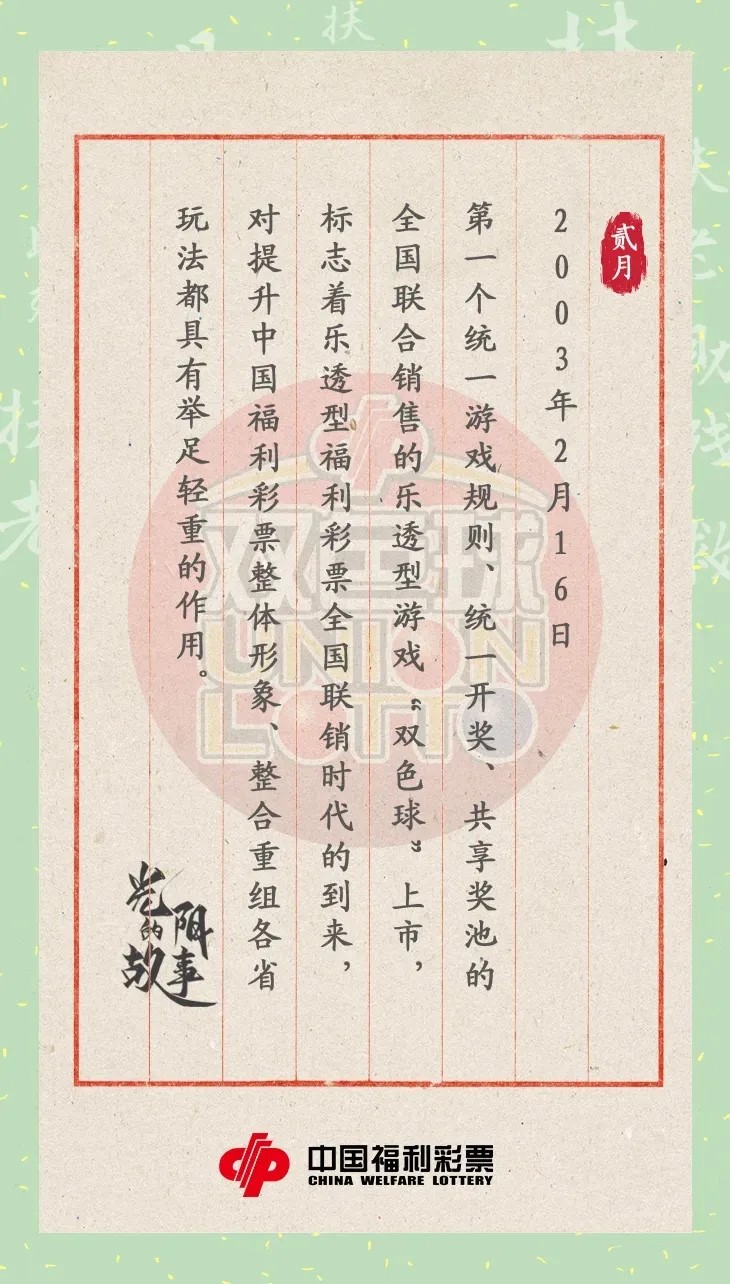 贰月
2003年2月16日
第一个统一游戏规则、统一开奖、共享奖池的
全国联合销售的乐透型游戏“双色球”上市，
标志着乐透型福利彩票全国联销时代的到来，
对提升中国福利彩票整体形象、整合重组各省
玩法都具有举足轻重的作用。
双色球
UNION
LOTTO
光阴的故事
中国福利彩票
CHINA WELFARE LOTTERY
扶
扶老助残救
扶老